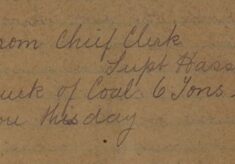 rom Chief Clerk
Supt Hass
uck of Coal 6 Tons.
ou this day